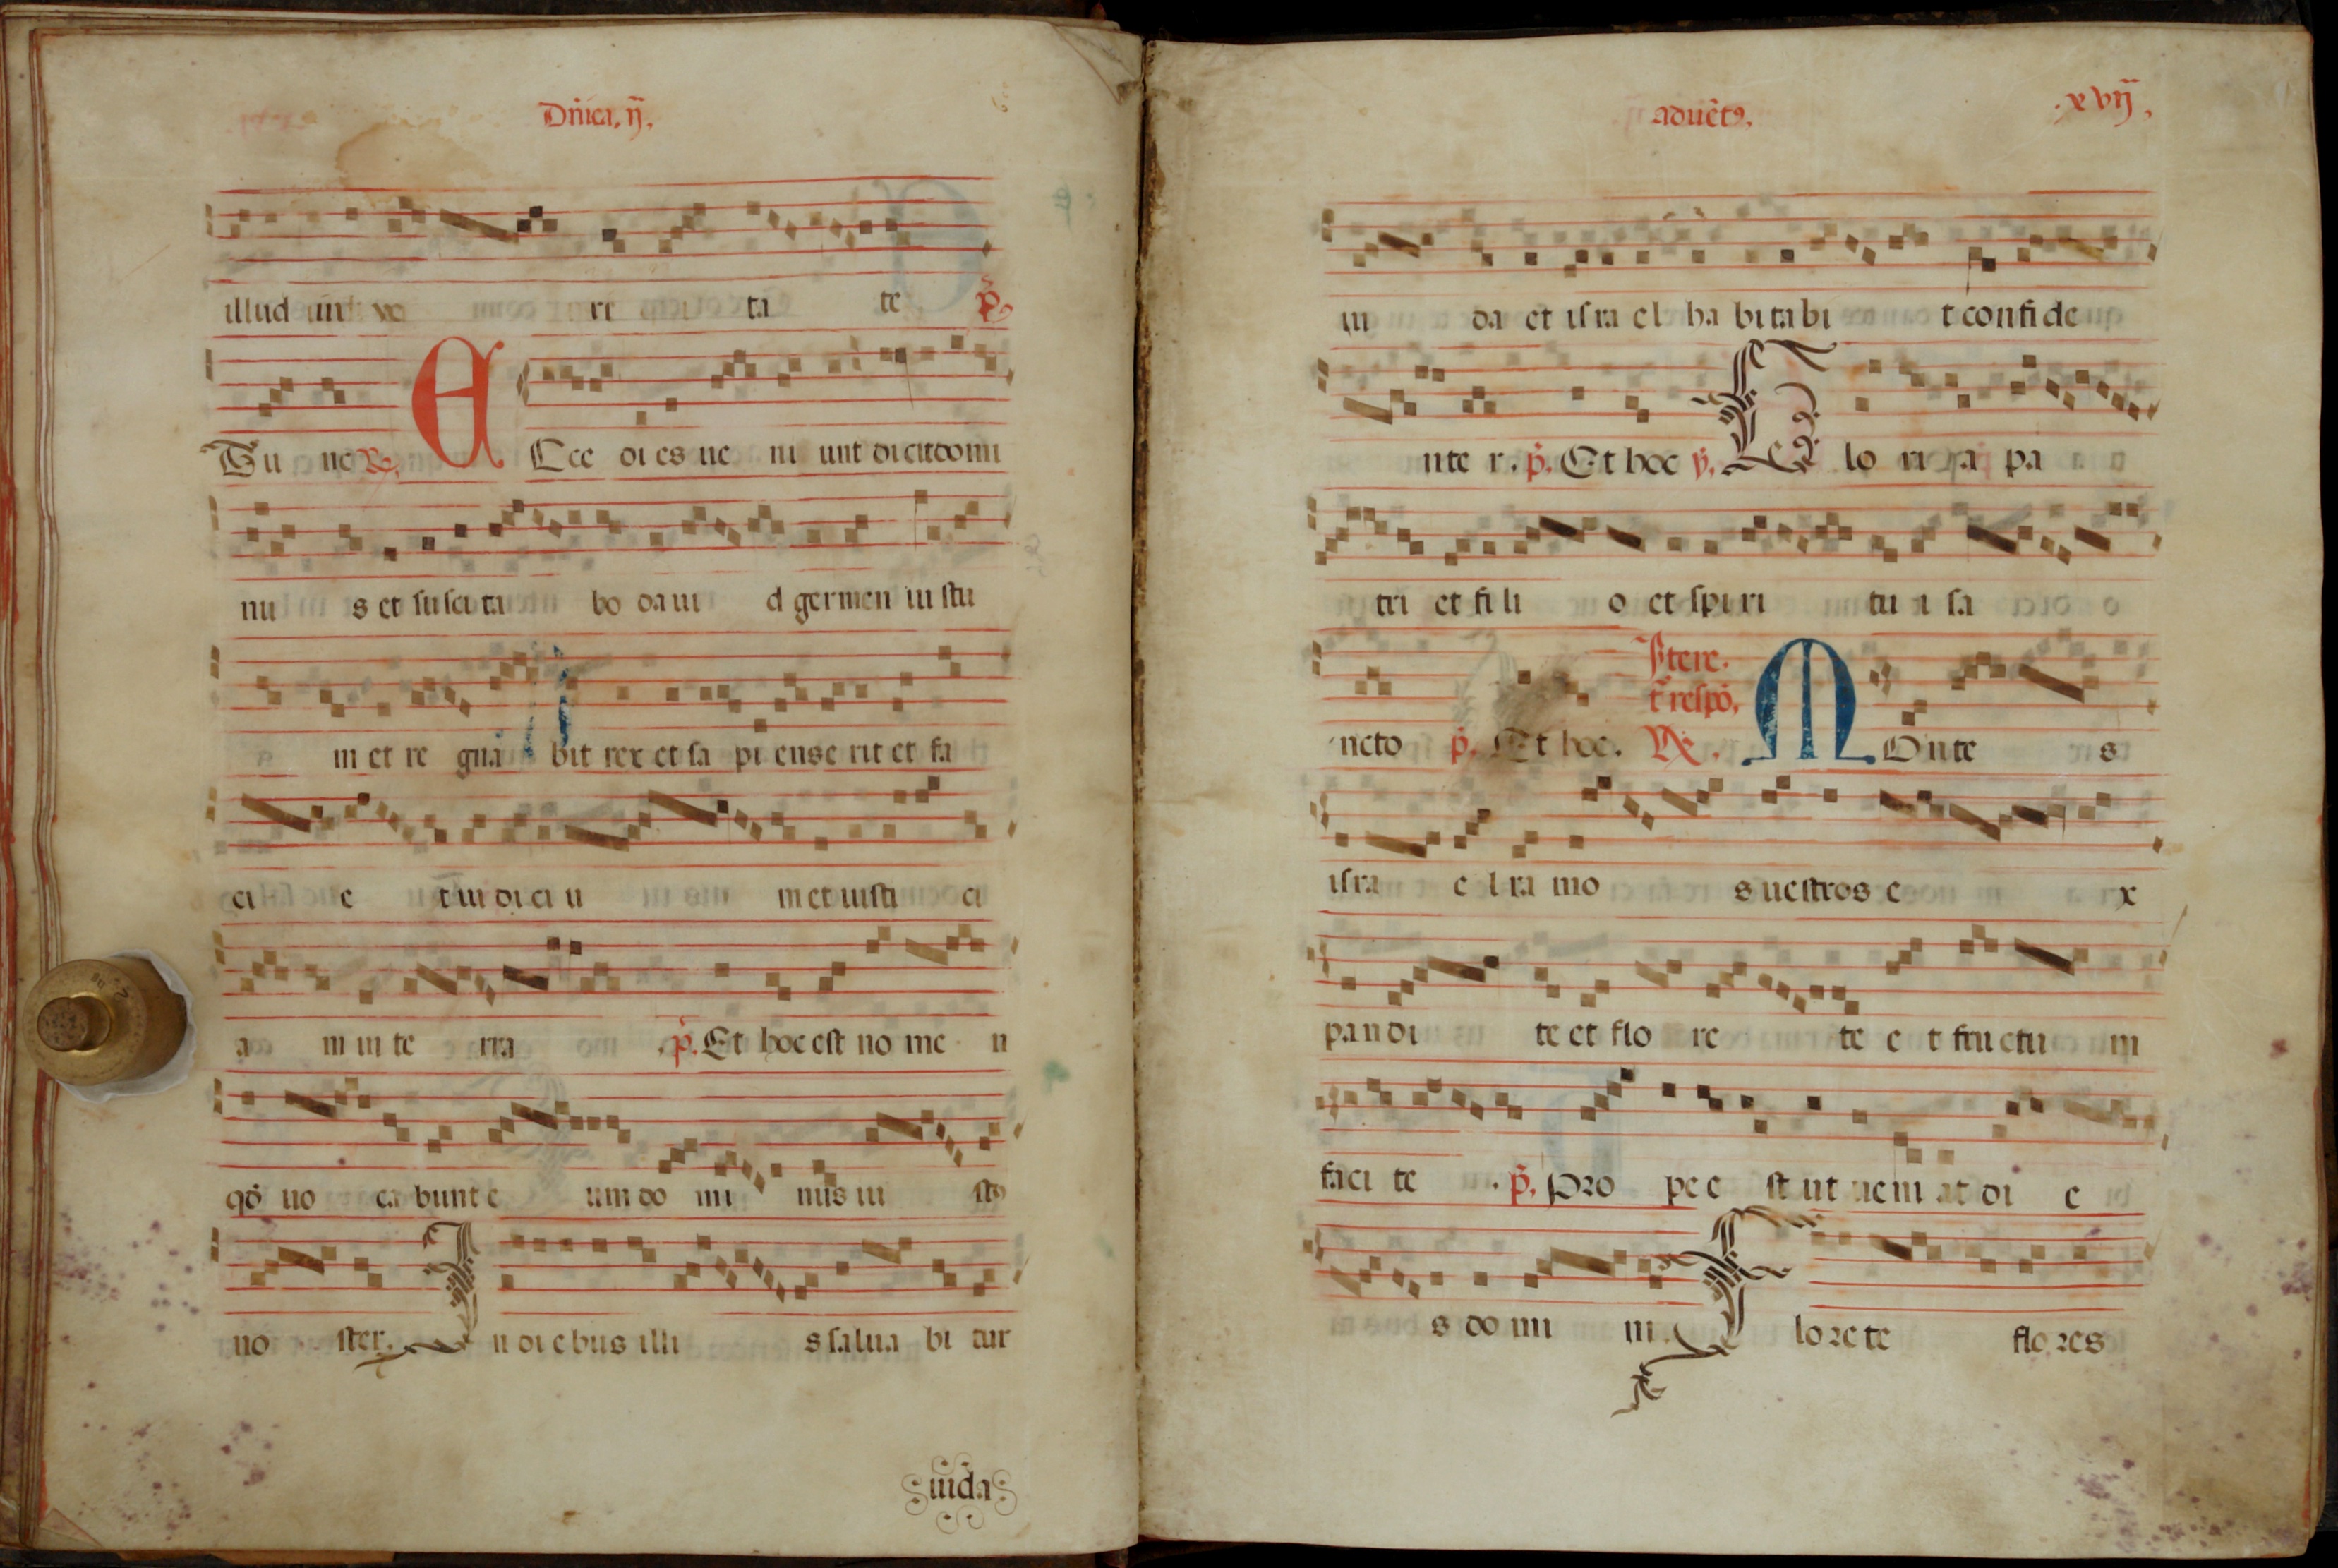 Dñica. ij.
illud in ve ri ta te p̃
Tu nc R. E
Cce di es ue ni unt dicit domi
nu s et suscita bo daui d germen iustu
m et re gna bit rex et sa pi ens e rit et fa
ci e t iudiciu m et iusti ci
a m in te rra .p̃. Et hoc est no me n
qd̃ uo ca bunt e um do mi nus iu sto
no ster. I n diebus illi s salua bi tur
iuda
aduẽtꝰ.
.xvij.
iu da et israel ha bitabi t confide
nte r. p̃. Et hoc ỹ. G lo ri a pa
tri et fili o et spiri tu i sa
ncto p̃. Et hoc. R. M Onte s
isra e l ra mo s uestros e x
pandi te et flo re te e t fructu m
faci te .p̃. Pro pe e st ut ueniat di e
s domi ni. F lorete flores